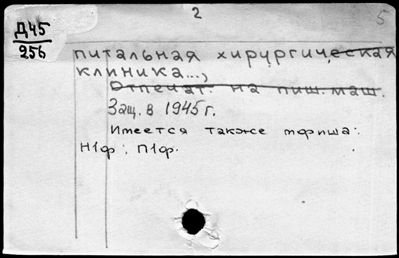 2
5
Д45
256
питальная хирургическая
клиника...,
Отпечат. на пиш. маш.
Защ. в 1945 г.
Имеется также мфиша:
Н1ф: П1ф.